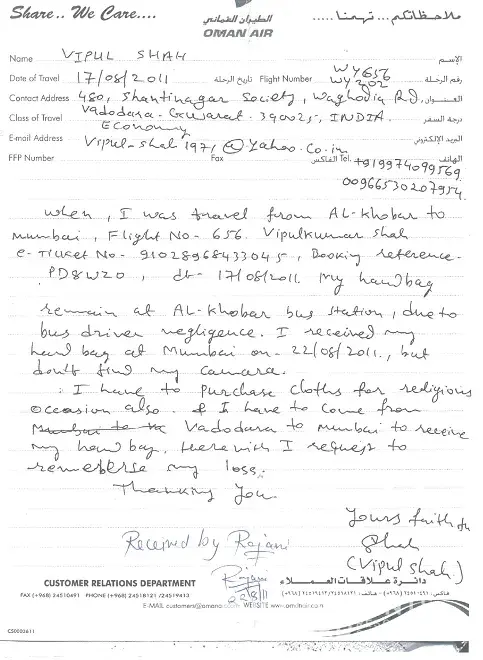 Share.. We Care....
الطيران العماني
OMAN AIR
ملاحظاتكم... تهمنا......
Name VIPUL SHAH الإسم
Date of Travel 17/08/2011 تاريخ الرحلة Flight Number WY656 WY202 رقم الرحلة
Contact Address 480, Shantinagar Society, Waghodia Rd, العنوان
Class of Travel Vadodara - Gujarat - 390025, INDIA. درجة السفر
Economy
E-mail Address Vipul_shah1971@yahoo.co.in البريد الإلكتروني
FFP Number Fax الفاكس Tel: +919974099569 الهاتف
00966530207954
when, I was travel from AL-Khobar to
mumbai, Flight No- 656. Vipulkumar shah
e-Ticket No- 9102896843304 5, Booking reference-
PD8W20, dt- 17/08/2011. My handbag
remain at AL-Khobar bus station, due to
bus driver negligence. I received my
hand bag at Mumbai on- 22/08/2011., but
don't find my camara.
I have to purchase cloths for religious
occasion also. & I have to come from
Vadodara to mumbai to receive
my hand bag. Here with I request to
remeberse my loss.
Thanking You.
Yours faith
Shah
(Vipul shah.)
Received by Rajani
Rajani
22/8/11
CUSTOMER RELATIONS DEPARTMENT دائرة علاقات العملاء
FAX (+968) 24510491 PHONE (+968) 24518121 /24519413
E-MAIL customers@omana .com WEBSITE www.omanair.com
CS0003611